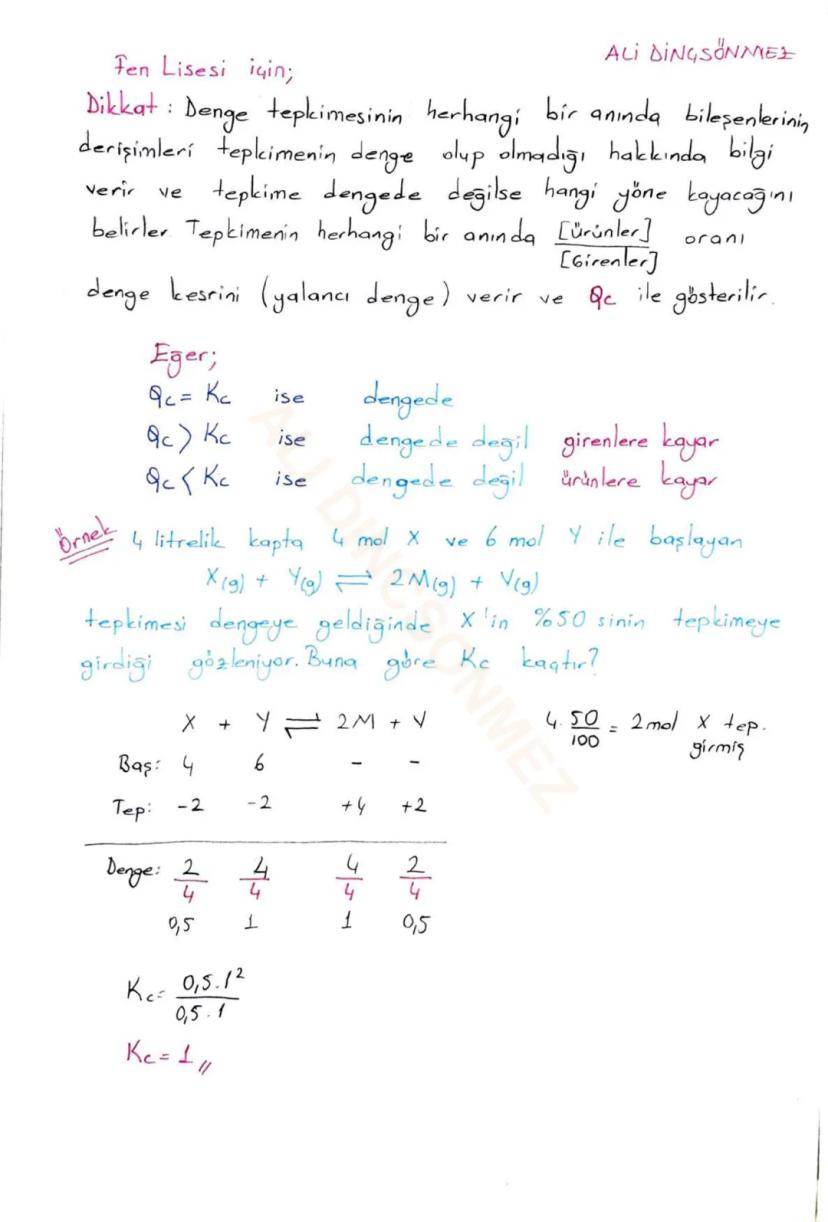 ALİ DİNÇSÖNMEZ
Fen Lisesi için;
Dikkat : Denge tepkimesinin herhangi bir anında bileşenlerinin
derişimleri tepkimenin denge olup olmadığı hakkında bilgi
verir ve tepkime dengede değilse hangi yöne kayacağını
belirler. Tepkimenin herhangi bir anında [Ürünler] / [Girenler] oranı
denge kesrini (yalancı denge) verir ve Qc ile gösterilir.
Eğer;
Qc = Kc ise dengede
Qc > Kc ise dengede değil girenlere kayar
Qc < Kc ise dengede değil ürünlere kayar
Örnek 4 litrelik kapta 4 mol X ve 6 mol Y ile başlayan
X(g) + Y(g) ⇌ 2M(g) + V(g)
tepkimesi dengeye geldiğinde X'in %50 sinin tepkimeye
girdiği gözleniyor. Buna göre Kc kaçtır?
X + Y ⇌ 2M + V
4. 50/100 = 2 mol X tep.
girmiş
Baş: 4 6 - -
Tep: -2 -2 +4 +2
Denge: 2/4 4/4 4/4 2/4
0,5 1 1 0,5
Kc = 0,5.1² / 0,5.1
Kc = 1 //
ALI DINCSONMEZ